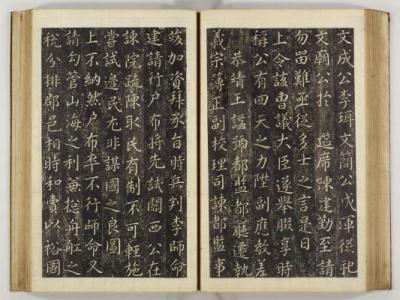 文成公李珥文簡公成渾從祀
文廟公於筵席陳達勤至請
勿留難亟從多士之言是日
上令該曹議大臣遂舉腏享時
稱公有回天之力陞副應教差
恭靖王謚號都監都廳遷執
義宗簿正副校理司諫都監事
竣加資拜承旨時兵判李師命
建請行戶布將先試關西公在
諫院疏陳取民有制不可輕施
嘗試邊民尤非謀國之良圖
上不納然戶布卒不行師命又
請勾管山海之利兼捴舟舡之
稅分排郡邑相時和賣以裕國